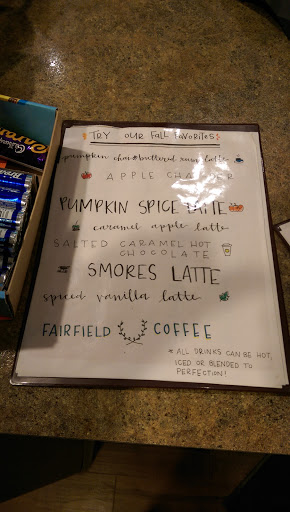 TRY OUR FALL FAVORITES!
pumpkin chai & buttered rum latte
APPLE CHAIDER
PUMPKIN SPICE LATTE
caramel apple latte
SALTED CARAMEL HOT
CHOCOLATE
SMORES LATTE
spiced vanilla latte
FAIRFIELD COFFEE
* ALL DRINKS CAN BE HOT,
ICED OR BLENDED TO
PERFECTION!